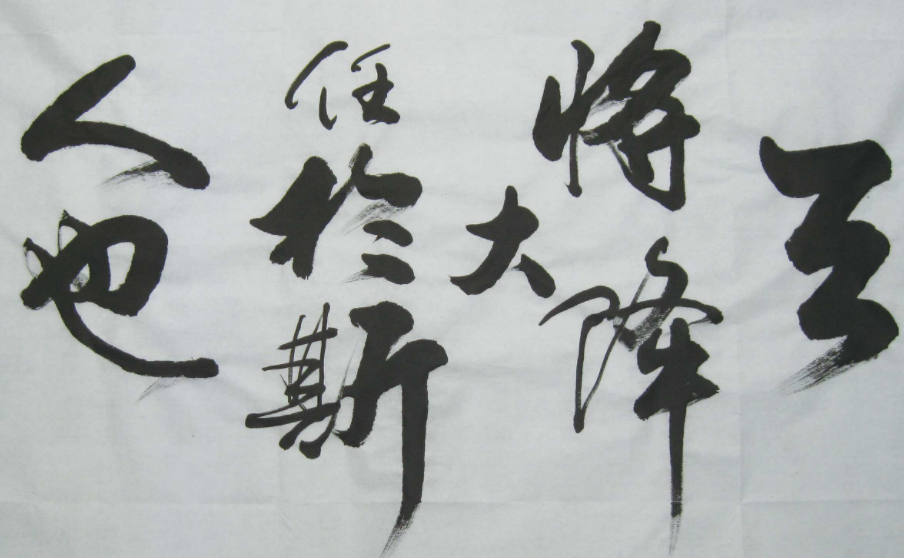 天
将降
大
任於斯
人也